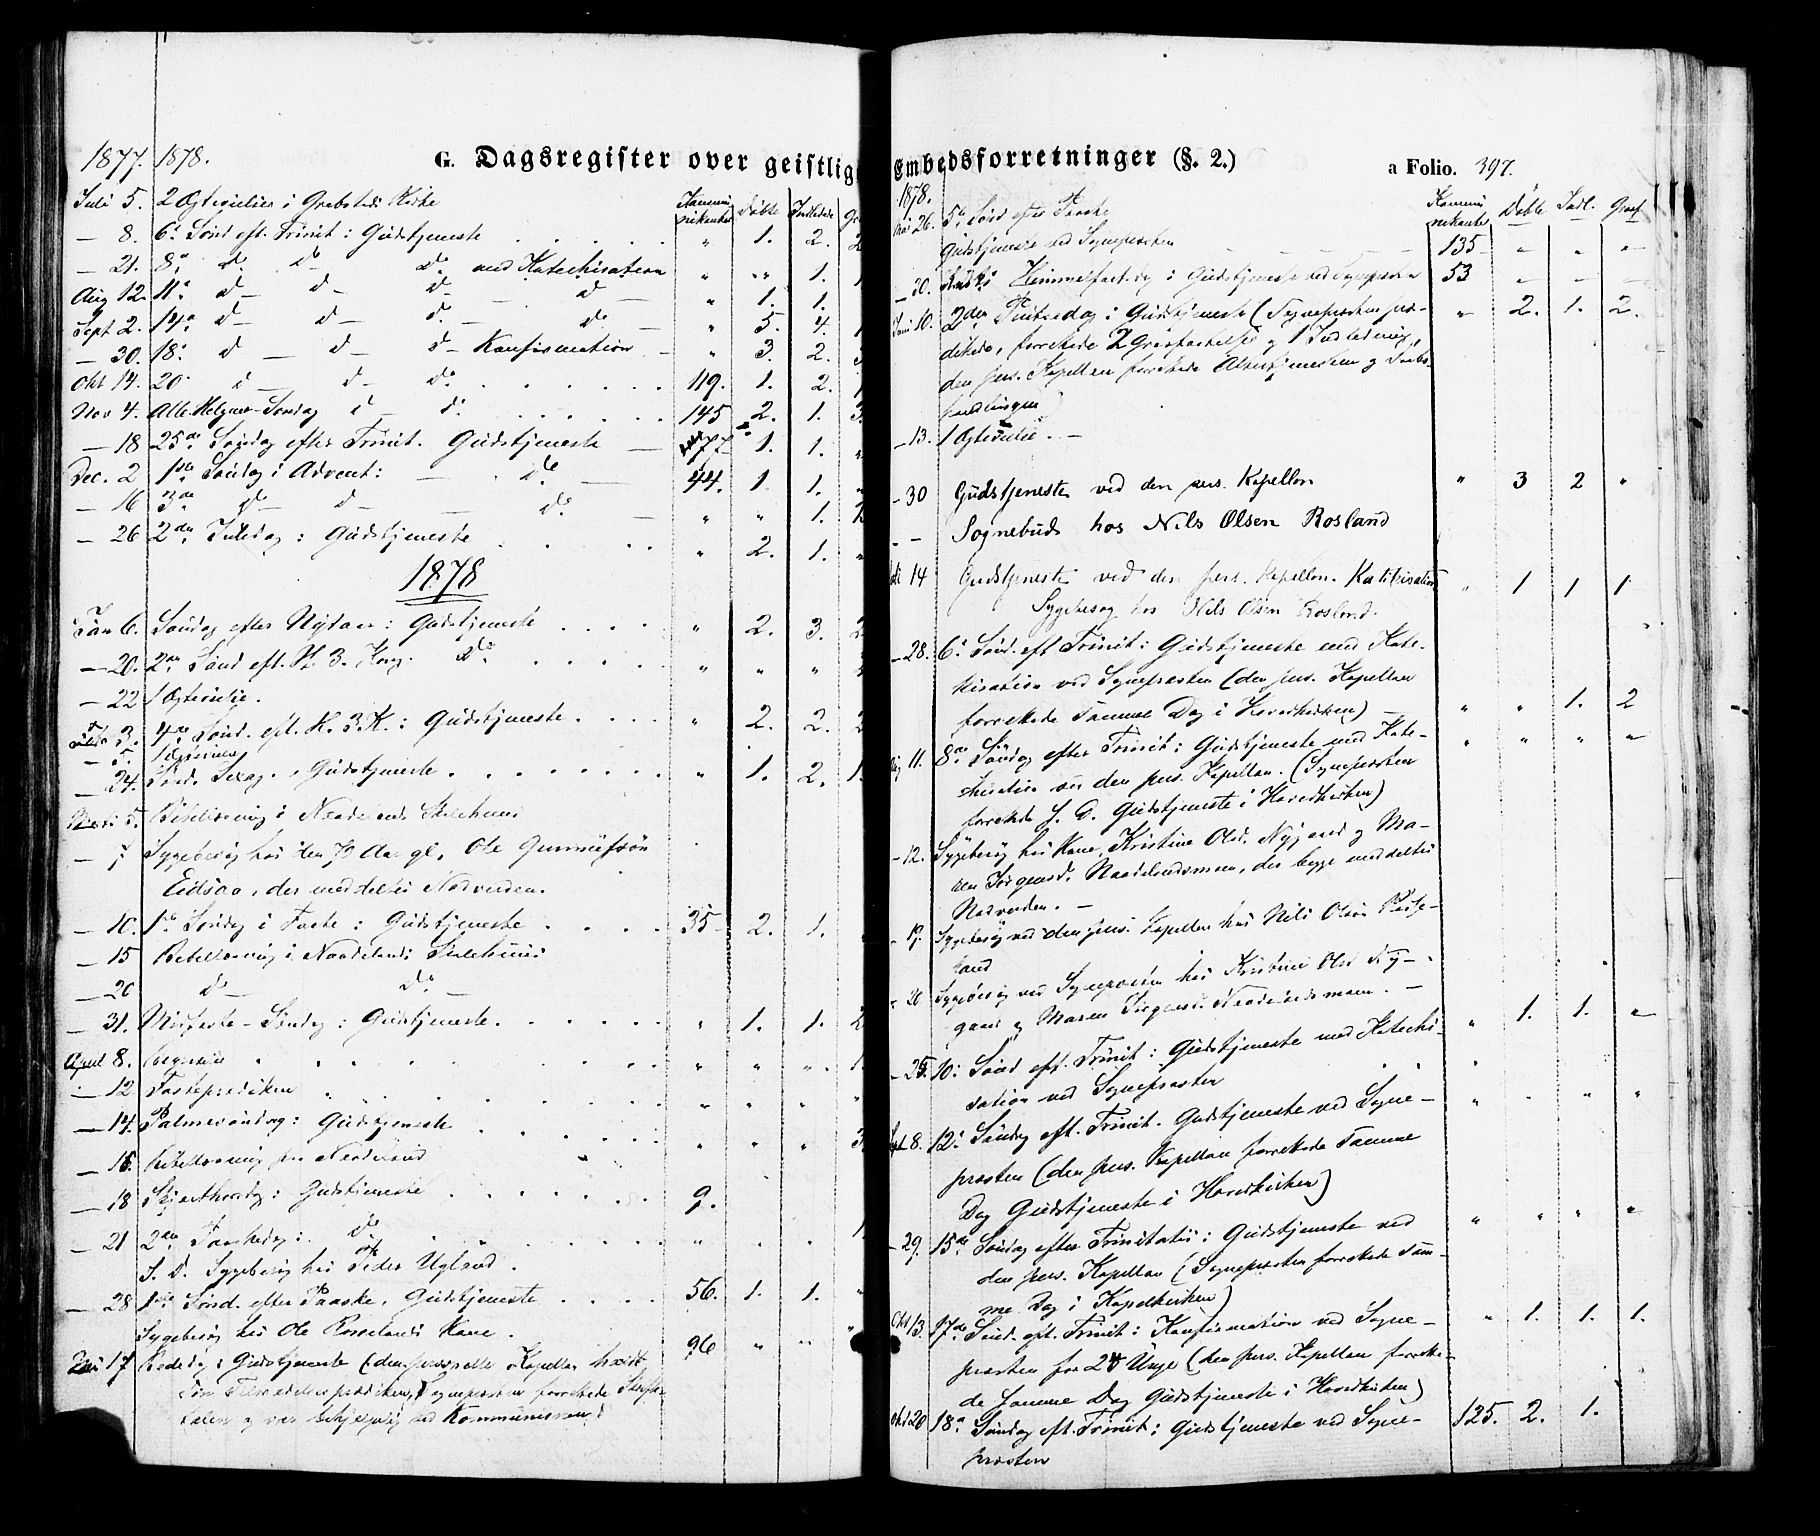 1877. 1878.
G. Dagsregister over geistlig
Kommunikanter Døbte Indledede Gr
Juli 5. 2 Ægtevielser i Grebsteds Kirke
— 8. 6te Sønd. eft. Trinit: Gudstjeneste . . . . „ 1. 2. 2
— 21. 8de do do do med Katechisation „ „ 1. 1
Aug 12. 11te d— d— d— — d— „ 1. 1.
Sept 2. 14de d— d— d— do „ 5. 4. 1
— 30. 18de d— d— d— Konfirmation — „ 3. 2. 3
Okt 14. 20 d— d— do . . . . . 119. 1. 2. 1
Nov 4. Alle Helgens-Søndag d— do . . . . 145 2. 1. 3
— 18 25de Søndag efter Trinit. Gudstjeneste — 77 1. 1. „
Dec. 2 1ste Søndag i Advent: — do — 44. 1. 1. „
— 16 3die do d— — do — „ „ 1.
— 26 2den Juledag: Gudstjeneste . . . . „ 2. 1. „
1878
Jan 6. Søndag efter Nytaar: Gudstjeneste . . . . „ 2. 3. 2
— 20. 2den Sønd. eft. H. 3. Kong. do . . . . „ „ „
— 22 1 Ægtevielse.
3. 4de Sønd. eft. H. 3 K.: Gudstjeneste. . . . „ 2. 2. 2
— 5. 1 Ægtevielse
— 24. Sønd. Sexag. Gudstjeneste . . . . . „ 1. 2. 1.
5. Bibellæsning i Naadelands Skolehuus
— 7 Sygebesøg hos den 70 Aar gl. Ole Gunnufsøn
Eidsaa, der meddeltes Nadverden.
— 10. 1ste Søndag i Faste: Gudstjeneste . . . . 35 2. 1. „
— 15 Bibellæsning i Naadelands Skolehuus
— 20 d— do —
— 31. Midfaste-Søndag: Gudstjeneste. . . . . „ 1. 1. 2
April 8. . . . . . „ „ „ 1.
— 12 Fasteprædiken . . . . . „ „ „ „
— 14. Palmesøndag: Gudstjeneste . . . . „ „ „ 3
— 15. Bibellæsning paa Naadeland
— 18 Skjærthorsdag: Gudstjeneste . . . . 9.
— 21 2den Paaskedag: do . . . . „ . . 1
S. D. Sygebesøg hos Peder Ugland.
— 28 1ste Sønd. efter Paaske. Gudstjeneste . . . . 56. 1. 1. „
Sygebesøg hos Ole Rosselands Kone.
Mai 17 Bededag: Gudstjeneste (den personelle Kapellan holdt 96 „ „ „
sin Tiltrædelsesprædiken, Sognepræsten forrettede Skrifte-
talen og var behjelpelig ved Kommunionen)
Embedsforretninger (§. 2.)
a Folio. 397.
1878. Kommunikanter Døbte Indl. Gravf
Mai 26. 5te Sønd efter Paaske
Gudstjeneste ved Sognepræsten — — — 135 „ „ „
— 30. Kristi Himmelfartsdag: Gudstjeneste ved Sognepræsten 53 — — —
Juni 10. 2den Pintsedag: Gudstjeneste (Sognepræsten præ- „ 2. 1. 2.
dikede, forrettede 2 Gravfæstelser og 1 Indledning,
den pers. Kapellan forrettede Altertjenesten og Daabs-
handlingen)
— 13. 1 Ægtevielse. —
— 30 Gudstjeneste ved den pers. Kapellan „ 3 2 „
— — Sognebud hos Nils Olsen Rosland
Juli 14 Gudstjeneste ved den pers. Kapellan. Katekisation „ 1 1 1
Sygebesøg hos Nils Olsen Rosland.
— 28. 6te Sønd. eft Trinit: Gudstjeneste med Kate-
kisation ved Sognepræsten (den pers. Kapellan
forrettede Samme Dag i Hovedkirken) — „ „ 1. 2
Aug 11. 8de Søndag efter Trinit: Gudstjeneste med Kate- „ „ „ „
chisation ved den pers. Kapellan. (Sognepræsten
forrettede S. D. Gudstjeneste i Hovedkirken)
— 12. Sygebesøg hos Kone Kristine Olsd. Nygaard og Ma-
ren Jørgensd. Naadelandsmoen, der begge meddeltes
Nadverden. —
— 19. Sygebesøg ved den pers. Kapellan hos Nils Olsøn Rosse-
land
— 20 Sygebesøg ved Sognepræsten hos Kristine Olsd Ny-
gaard og Maren Jørgensd. Naadelandsmoen. —
— 25. 10de Sønd eft. Trinit: Gudstjeneste med Katechi- „ 1. 1. „
sation ved Sognepræsten
Sept 8. 12te Søndag eft. Trinit. Gudstjeneste ved Sogne- „ „ „ „
præsten (den pers. Kapellan forrettede Samme
Dag Gudstjeneste i Hovedkirken)
— 29. 15de Søndag efter Trinitatis: Gudstjeneste ved „ „ „ „
den pers. Kapellan (Sognepræsten forrettede Sam-
me Dag i Kapelkirken)
Okt 13. 17de Sønd. eft. Trinit: Konfirmation ved Sogne- „ 1. 1. 1.
præsten for 24 Unge (den pers. Kapellan forrette-
de Samme Dag Gudstjeneste i Hovedkirken)
Okt 20 18de Søndag eft. Trinit: Gudstjeneste ved Sogne- 125. 2. 1.
præsten